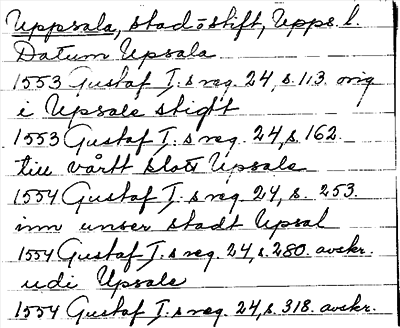 Uppsala, stad o stift, Upps. l.
Datum Upsala
1553 Gustaf I.s reg. 24, s. 113. orig
i Upsale stigtt
1553 Gustaf I.s reg. 24, s. 162.
till vårtt slott Upsale
1554 Gustaf I.s reg. 24, s. 253.
inn unser stadt Upsal
1554 Gustaf I.s reg. 24, s. 280. avskr.
udi Upsale
1554 Gustaf I.s reg. 24, s. 318. avskr.